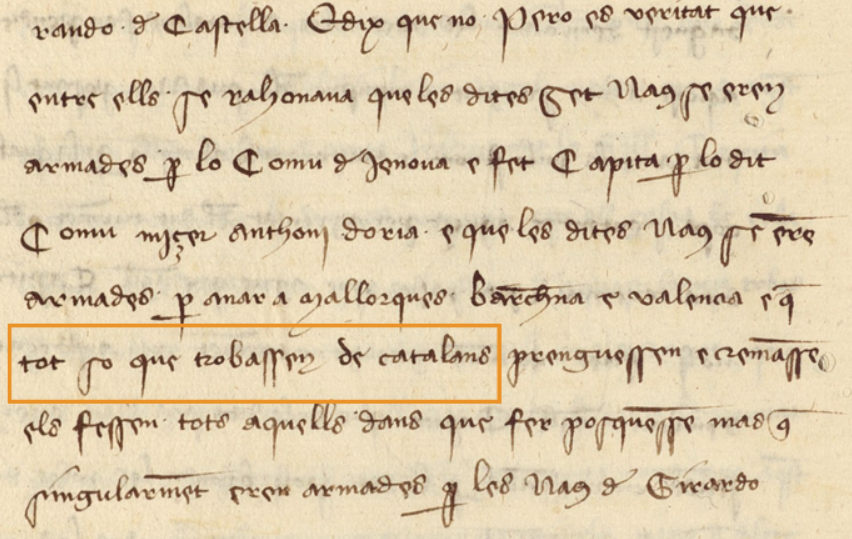 rando de Castella. E dix que no. Pero es veritat que
entre ells se rahonaua que les dites Set Naus se eren
armades p lo Comu de Jenoua e fet Capita p lo dit
Comu miçer anthoni doria. e que les dites Naus se erē
armades p anar a mallorques barchna e valencia e q̄
tot so que trobassen de catalans prenguessen e cremasse
els fessen tots aquells dans que fer posquesse mas q̄
singularmēt eren armades p les Naus de Girardo